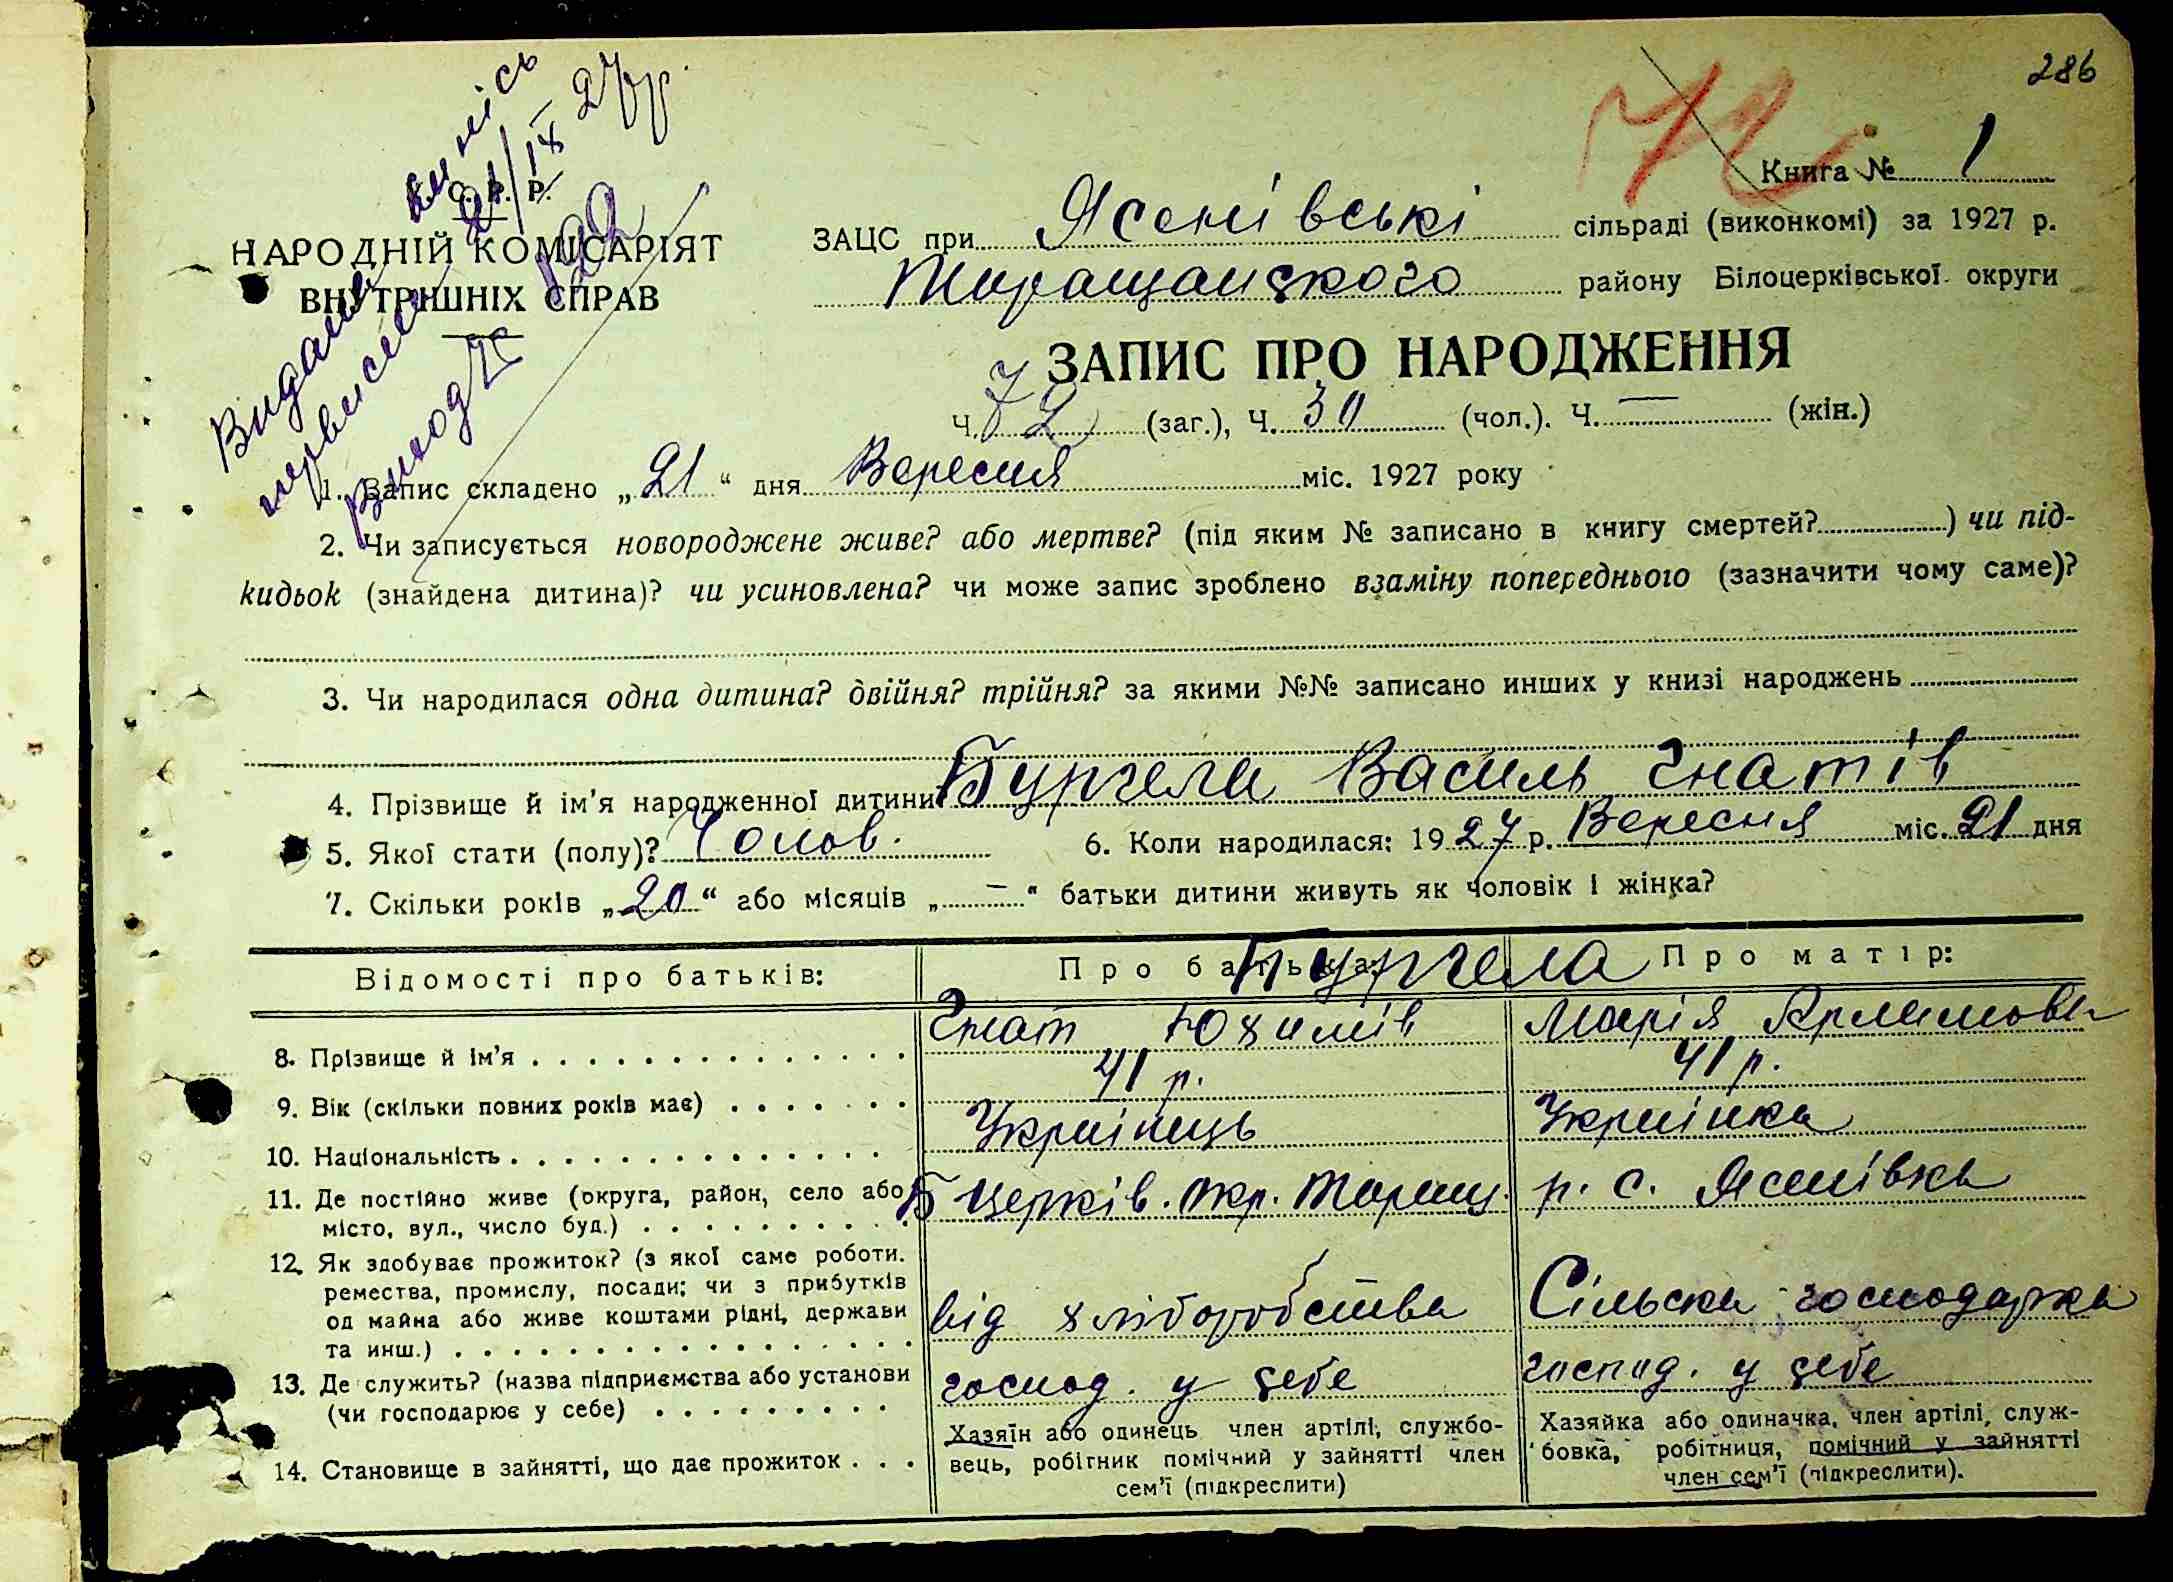 286
72
Книга № 1
У. С. Р. Р.
НАРОДНІЙ КОМІСАРІЯТ
ВНУТРІШНІХ СПРАВ
Видано
випись
21/IX 27р.
ЗАЦС при Ясенівські сільраді (виконкомі) за 1927 р.
Таращанского району Білоцерківської округи
ЗАПИС ПРО НАРОДЖЕННЯ
Ч. 72 (заг.), Ч. 30 (чол.). Ч. — (жін.)
1. Запис складено „21“ дня Вересня міс. 1927 року
2. Чи записується новороджене живе? або мертве? (під яким № записано в книгу смертей?) чи під-
кидьок (знайдена дитина)? чи усиновлена? чи може запис зроблено взаміну попереднього (зазначити чому саме)?
3. Чи народилася одна дитина? двійня? трійня? за якими №№ записано инших у книзі народжень
4. Прізвище й ім'я народженної дитини Бургела Василь Гнатів
5. Якої стати (полу)? Чолов. 6. Коли народилася: 1927 р. Вересня міс. 21 дня
7. Скільки років „20“ або місяців „—“ батьки дитини живуть як чоловік і жінка?
Відомості про батьків: Про батька: Про матір:
Бургела
8. Прізвище й ім'я Гнат Юхимів Марія
9. Вік (скільки повних років має) 41 р. 41 р.
10. Національність Українець Українка
11. Де постійно живе (округа, район, село або Б Церків. окр. Таращ. р. с. Ясенівка
місто, вул., число буд.)
12. Як здобуває прожиток? (з якої саме роботи.
ремества, промислу, посади; чи з прибутків
од майна або живе коштами рідні, держави від хліборобства Сільска господарка
та инш.)
13. Де служить? (назва підприємства або установи господ. у себе господ. у себе
(чи господарює у себе)
14. Становище в зайнятті, що дає прожиток
Хазяїн або одинець член артілі, службо-
вець, робітник помічний у зайнятті член
сем'ї (підкреслити)
Хазяйка або одиначка, член артілі, служ-
бовка, робітниця, помічний у зайнятті
член сем'ї (підкреслити).